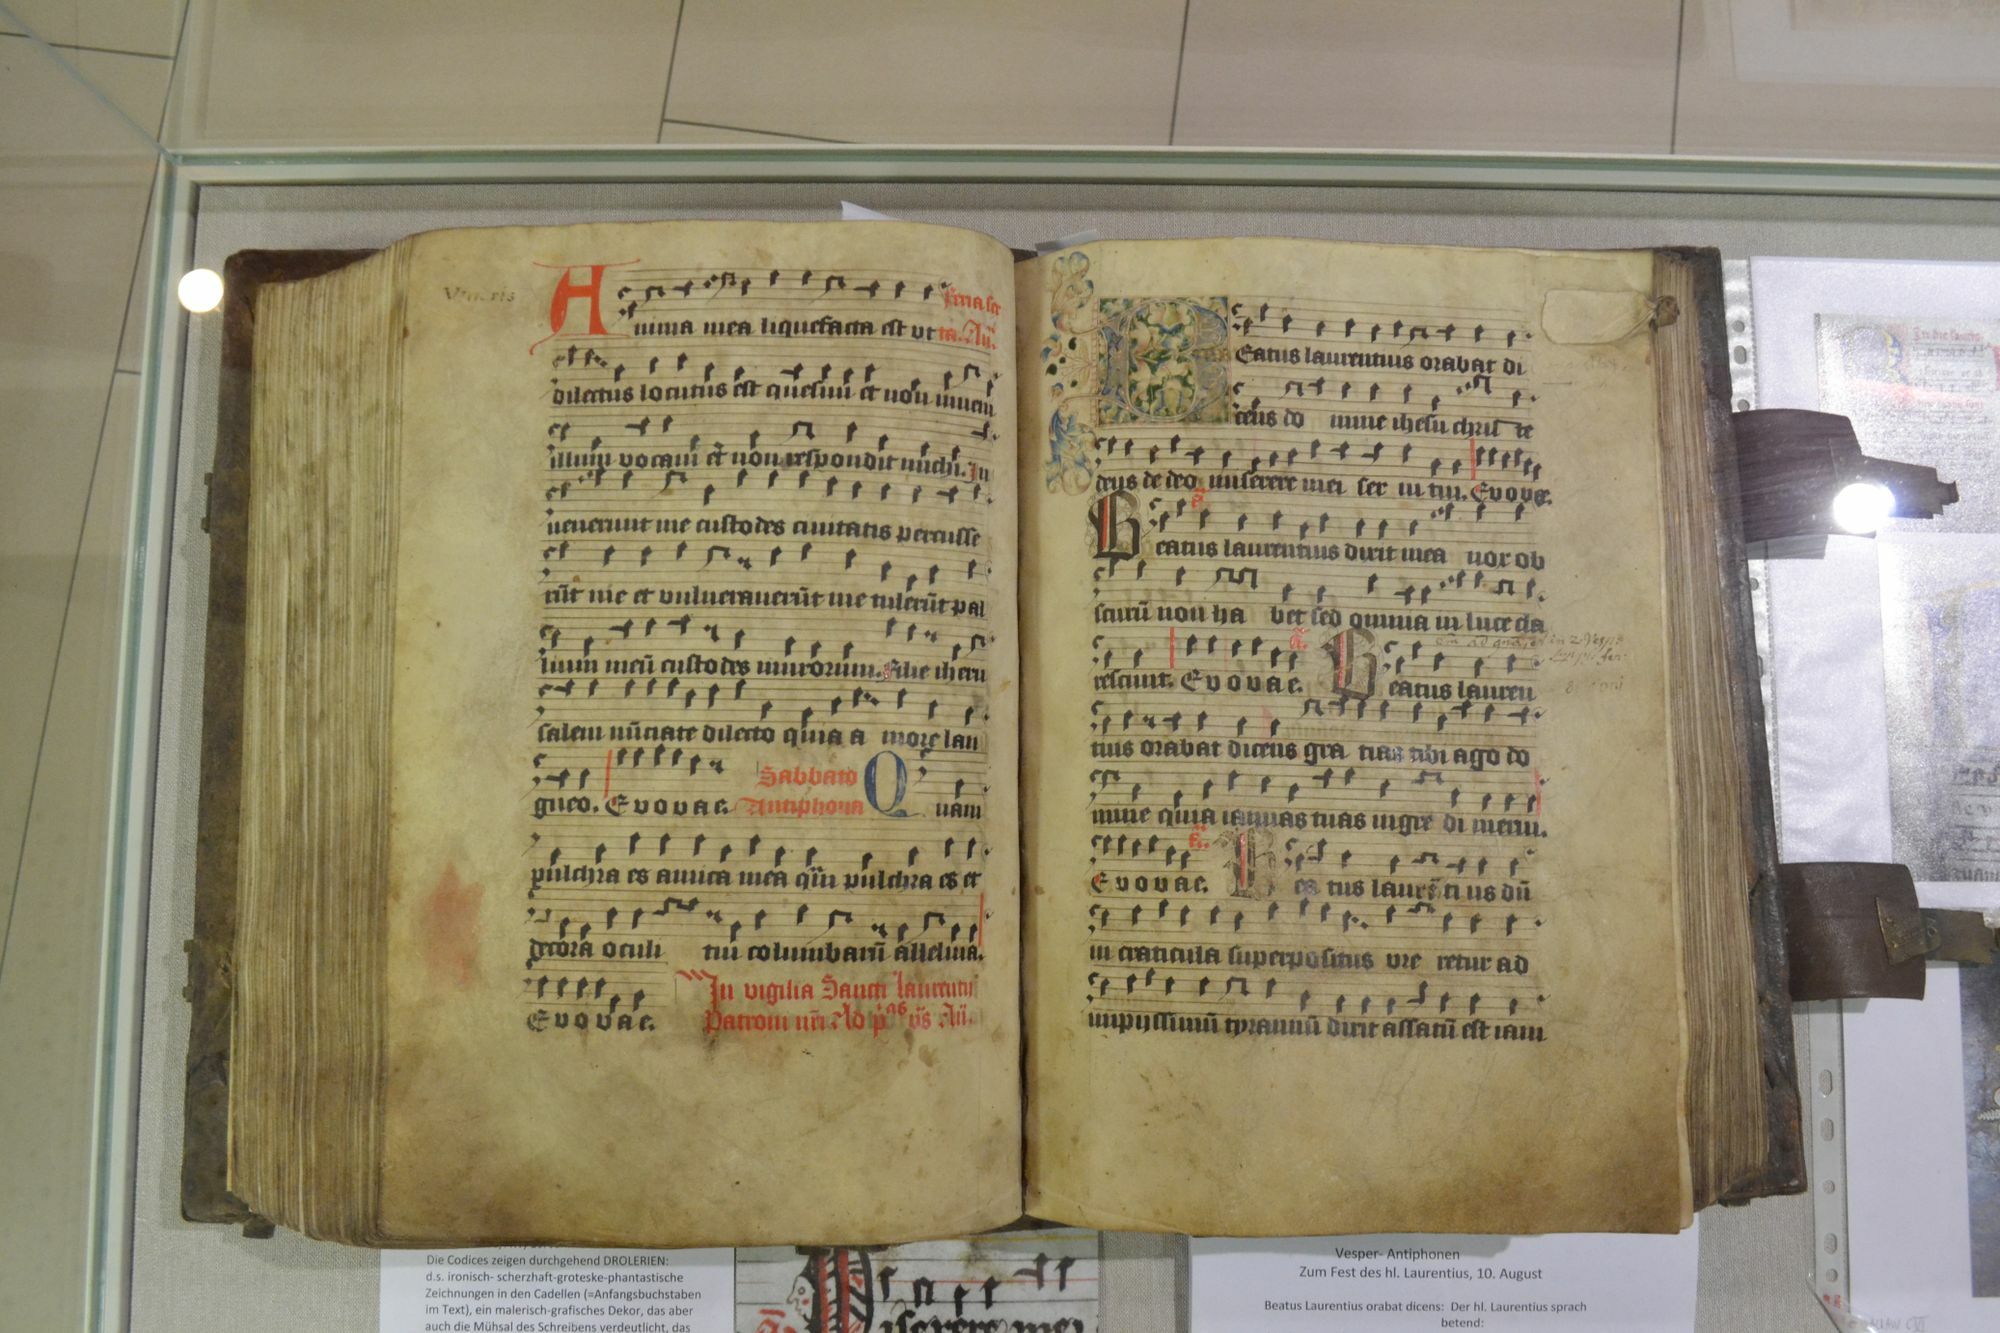 Anima mea liquefacta est ut
dilectus locutus est quesiui et non inueni
illum vocaui et non respondit michi. In
uenerunt me custodes ciuitatis percusse
rūt me et vulnerauerūt me tulerūt pal
lium meū custodes murorum. filie iheru
salem nūciate dilecto quia a more lan
gueo. Evovae. Sabbato
Antiphona Quam
pulchra es amica mea q̄m pulchra es et
decora oculi tui columbarū alleluia.
Evovae. In vigilia Sancti laurentii
Patroni nr̄i Ad
Beatus laurentius orabat di
cens do mine ihesu christe
deus de deo miserere mei ser ui tui. Evovae.
Beatus laurentius dixit mea nox ob
scurū non ha bet sed omnia in luce cla
rescunt. Evovae. Beatus lauren
tius orabat dicens gra tias tibi ago do
mine quia ianuas tuas ingre di merui.
Evovae. Bea tus laurēti us dū
in craticula superpositus vre retur ad
impyssimū tyrannū dixit assatū est iam
Die Codices zeigen durchgehend DROLERIEN:
d.s. ironisch- scherzhaft-groteske-phantastische
Zeichnungen in den Cadellen (=Anfangsbuchstaben
im Text), ein malerisch-grafisches Dekor, das aber
auch die Mühsal des Schreibens verdeutlicht, das
iserere mei
Vesper- Antiphonen
Zum Fest des hl. Laurentius, 10. August
Beatus Laurentius orabat dicens: Der hl. Laurentius sprach
betend: